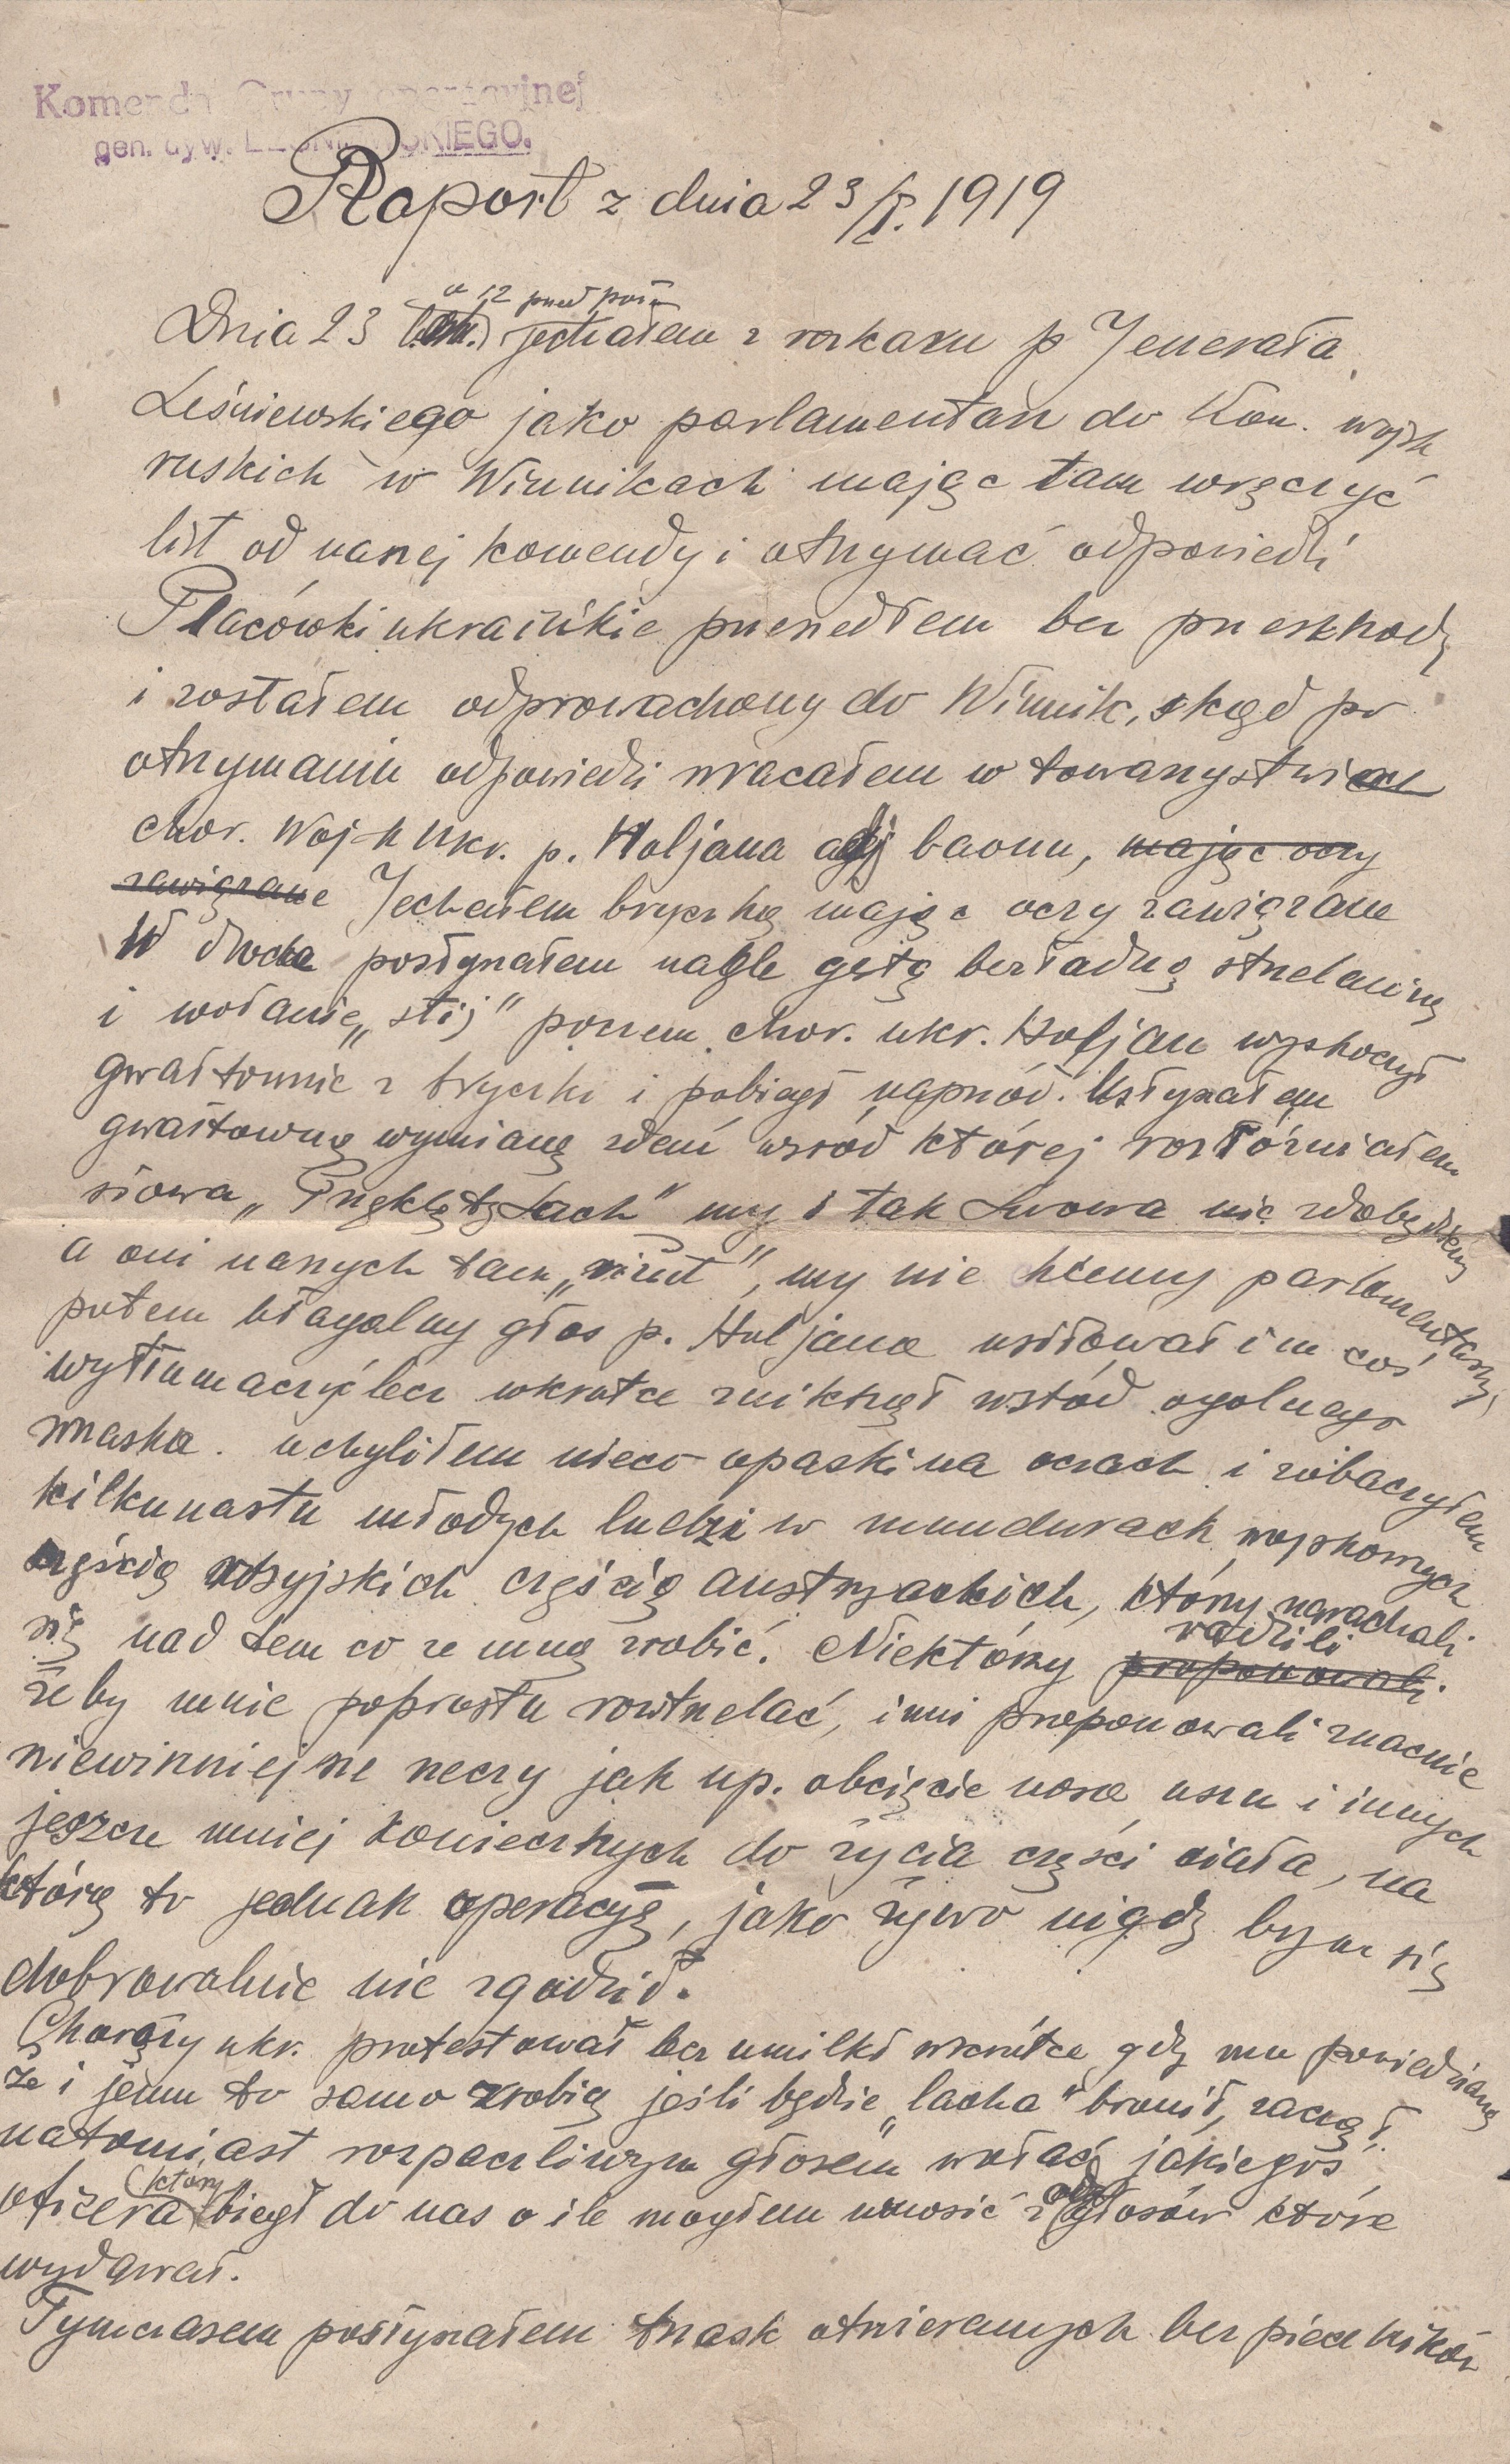 Komenda Grupy operacyjnej
gen. dyw. LEŚNIEWSKIEGO.
Raport z dnia 23/I. 1919
o 12 przed poł.
Dnia 23 jechałem z rozkazu p Jenerała
Leśniewskiego jako parlamentarz do Kom. wojsk
ruskich w Winnikach mając tam wręczyć
list od naszej komendy i otrzymać odpowiedź
Placówki ukraińskie przeszedłem bez przeszkody
i zostałem odprowadzony do Winnik, skąd po
otrzymaniu odpowiedzi wracałem w towarzystwie
chor. Wojsk Ukr. p. Holjana adj baonu, mając oczy
zawiązane Jechałem bryczką mając oczy zawiązane
W drodze posłyszałem nagle gęstą bezładną strzelaninę
i wołanie „stij" poczem chor. ukr. Holjan wyskoczył
gwałtownie z bryczki i pobiegł naprzód. Usłyszałem
gwałtowną wymianę zdań wsród której rozróżniałem
słowa „Przeklęty Lach" my i tak Lwowa nie zdobędziemy
a oni naszych tam „rižut", my nie chcemy parlamentarzy,
potem błagalny głos p. Holjana usiłował im coś
wytłumaczyć lecz wkrótce zniknął wśród ogolnego
wrzasku. uchyliłem nieco opaski na oczach i zobaczyłem
kilkunastu młodych ludzi w mundurach wojskowych
częścią rosyjskich częścią austrzackich, którzy naradzali
się nad tem co ze mną zrobić. Niektórzy radzili proponowali
żeby mnie poprostu rozstrzelać, inni proponowali znacznie
niewinniejsze rzeczy jak np. obcięcie nosa uszu i innych
jeszcze mniej koniecznych do życia części ciała, na
którę to jednak operacyę, jako żywo nigdy bym się
dobrowolnie nie zgodził.
Chorąży ukr. protestował lecz umilkł wkrótce gdy mu powiedziano
że i jemu to samo zrobią jeśli będzie „lacha" bronił, zaczął
natomiast rozpaczliwym głosem wołać jakiegoś
oficera który biegł do nas o ile mogłem wnosić z odgłosów które
wydawał.
Tymczasem posłyszałem trzask otwieranych bezpieczników